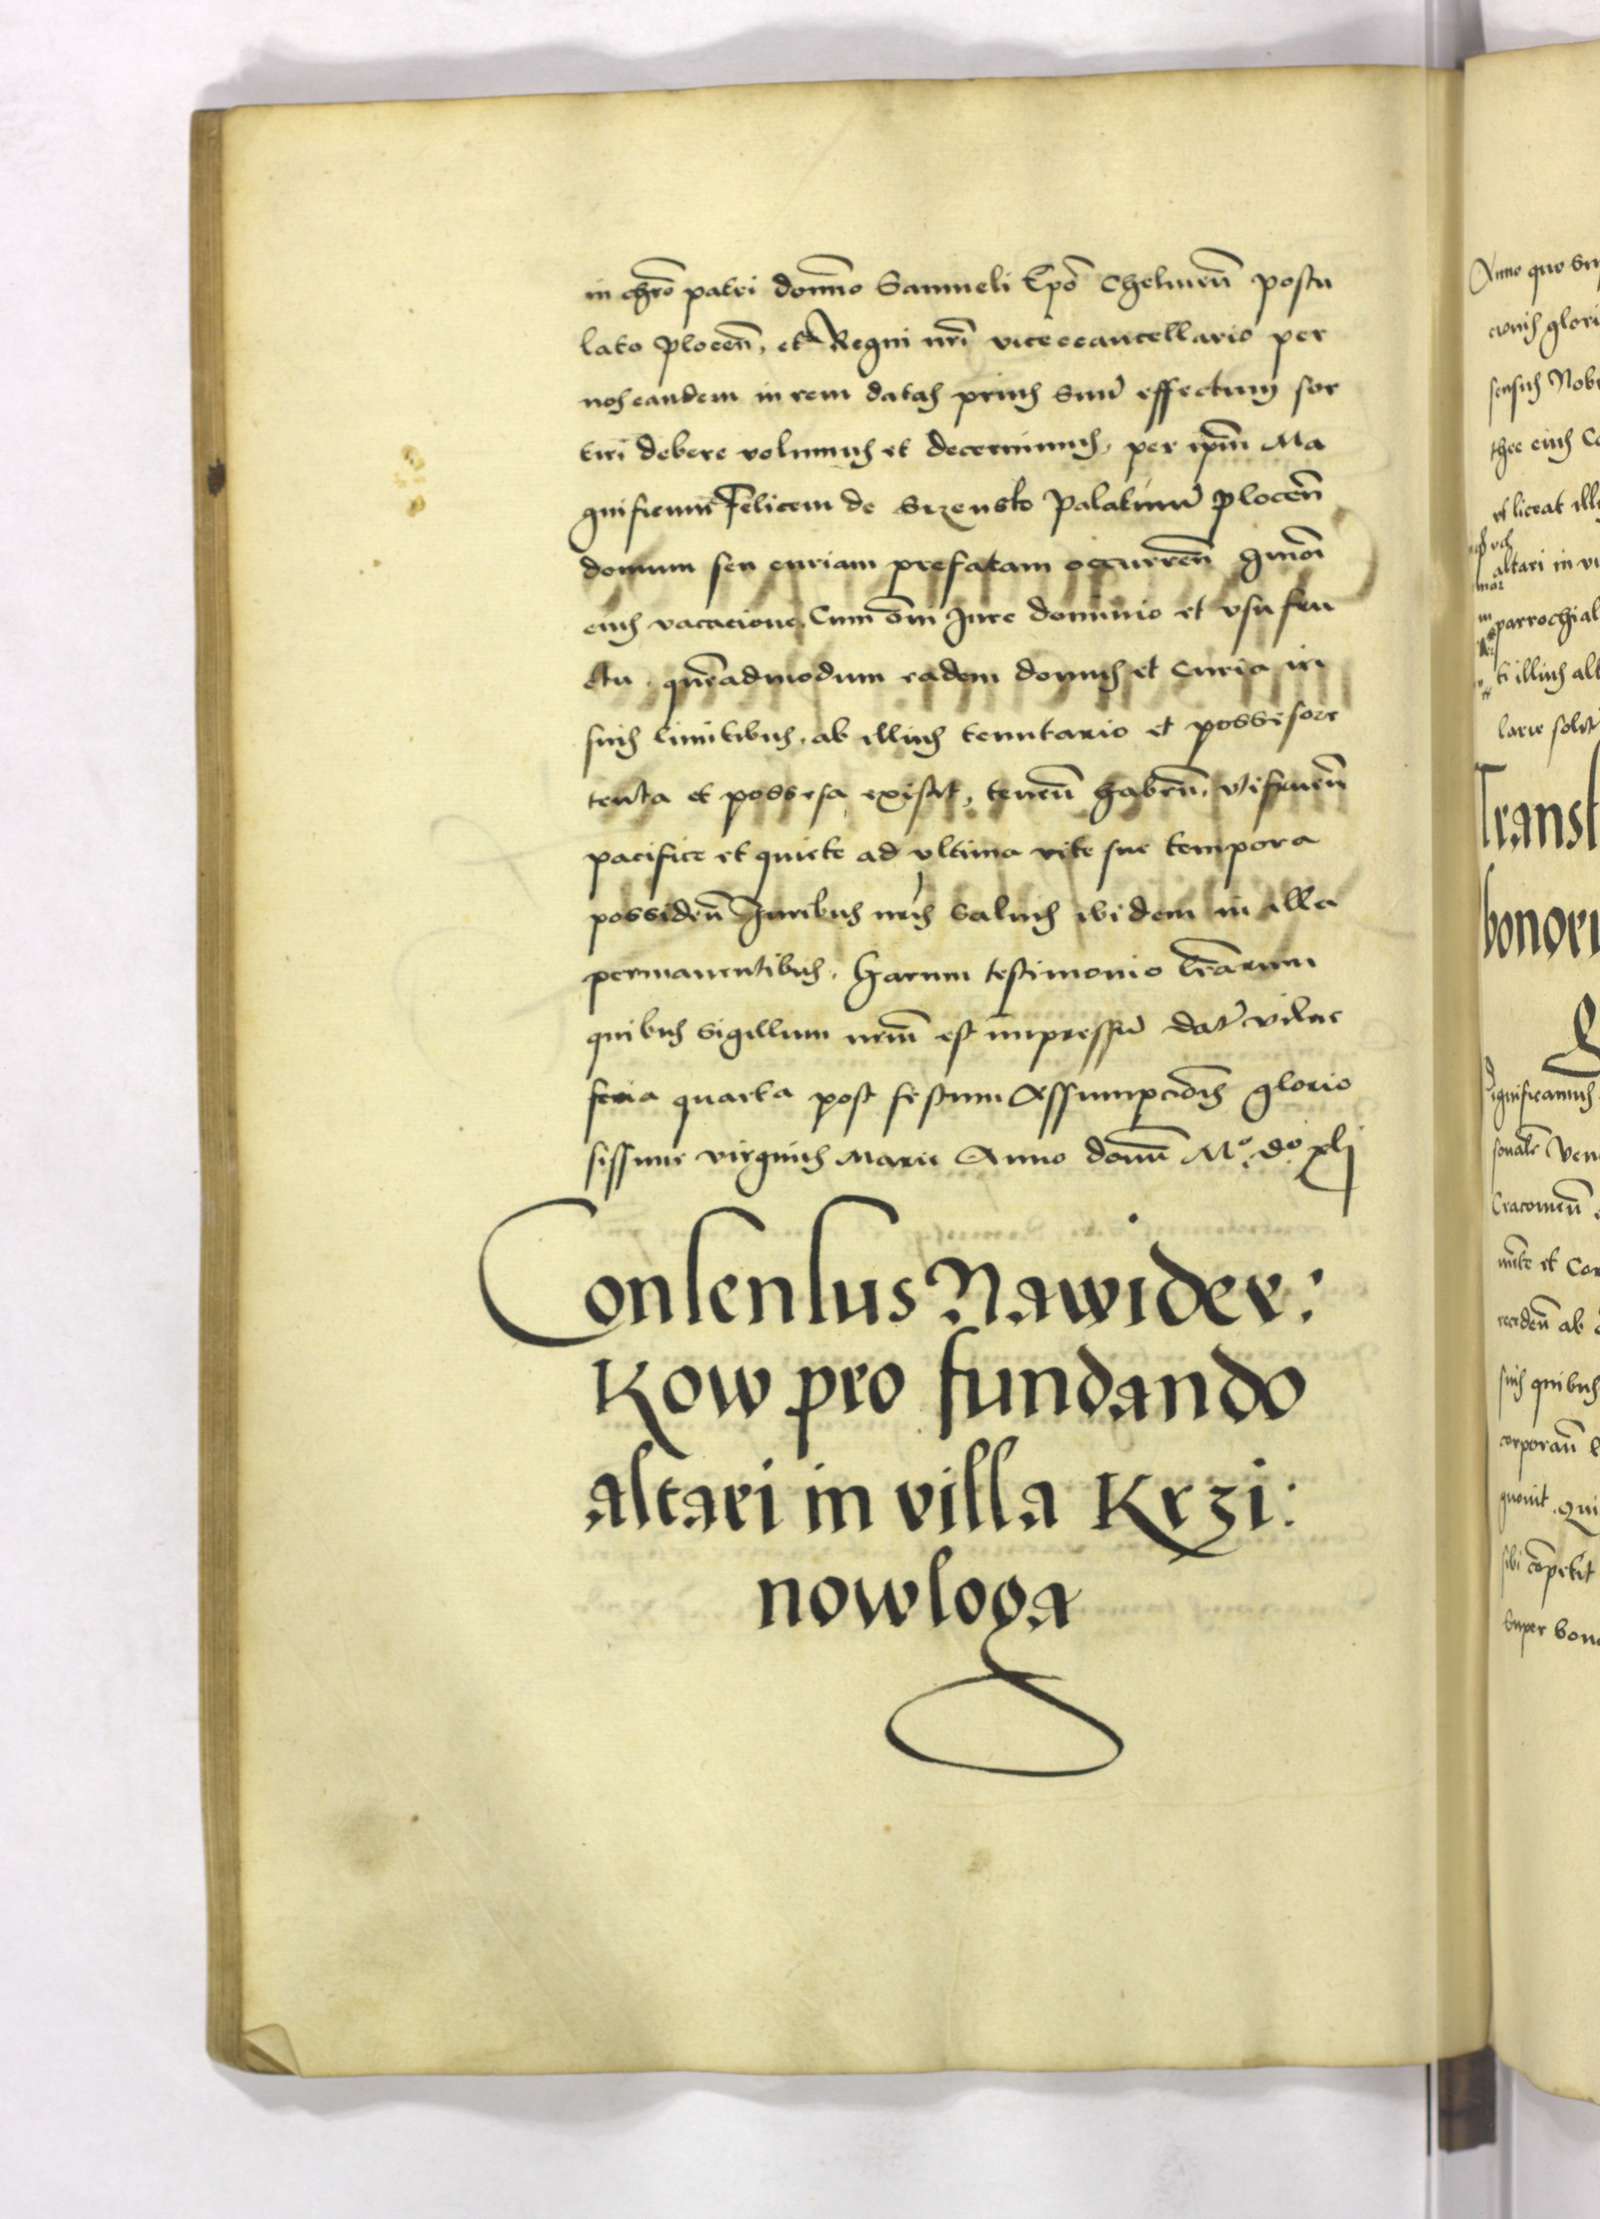 in chr̄o patri domn̄o Samueli Ep̄o Chelmen̄ postu
lato plocen̄, et Regni nr̄i vicecancellario per
nos eandem in rem datas prius suū effectum sor
tiri debere volumus et decernimus, per ip̄m Ma
gnificum Felicem de Srzensko palatinū plocen̄
domum seu curiam prefatam occurren̄
eius vacacione, Cum om̄i Jure dominio et vsufru
ctu, quēadmodum eadem domus et curia in
suis limitibus, ab illius tenutario et possesore
tenta et possesa existit, tenen̄ haben̄, vtifruen̄
pacifice et quiete ad vltima vite sue tempora
possiden̄ Juribus nr̄is saluis ibidem in illa
permanentibus, harum testimonio lr̄arum
quibus sigillum nr̄um est impressū datū vilne
feria quarta post festum Assumpcīonis glorio
sissime virginis Marie Anno domī Mº. dº. xlj
Consensus Nawider:
kow pro fundando
altari in villa Krzi:
nowloga
Anno quo
sensus
thee eius
et liceat
altari in
parrochial
ti illius
Transl
bonoru
significamus
Cracouien̄
et
reciden̄ ab
suis quibus
sibi cōpetit
super